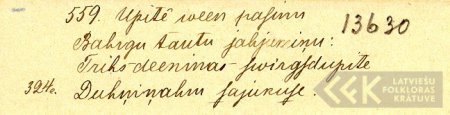 559. Upitē ween pasinu 13630
Bahrgu tautu jahjuminu:
Triks deeninas swirgsdupite
324o. Duhņiņahm sajukuse.
LATVIEŠU
FOLKLORAS
KRĀTUVE